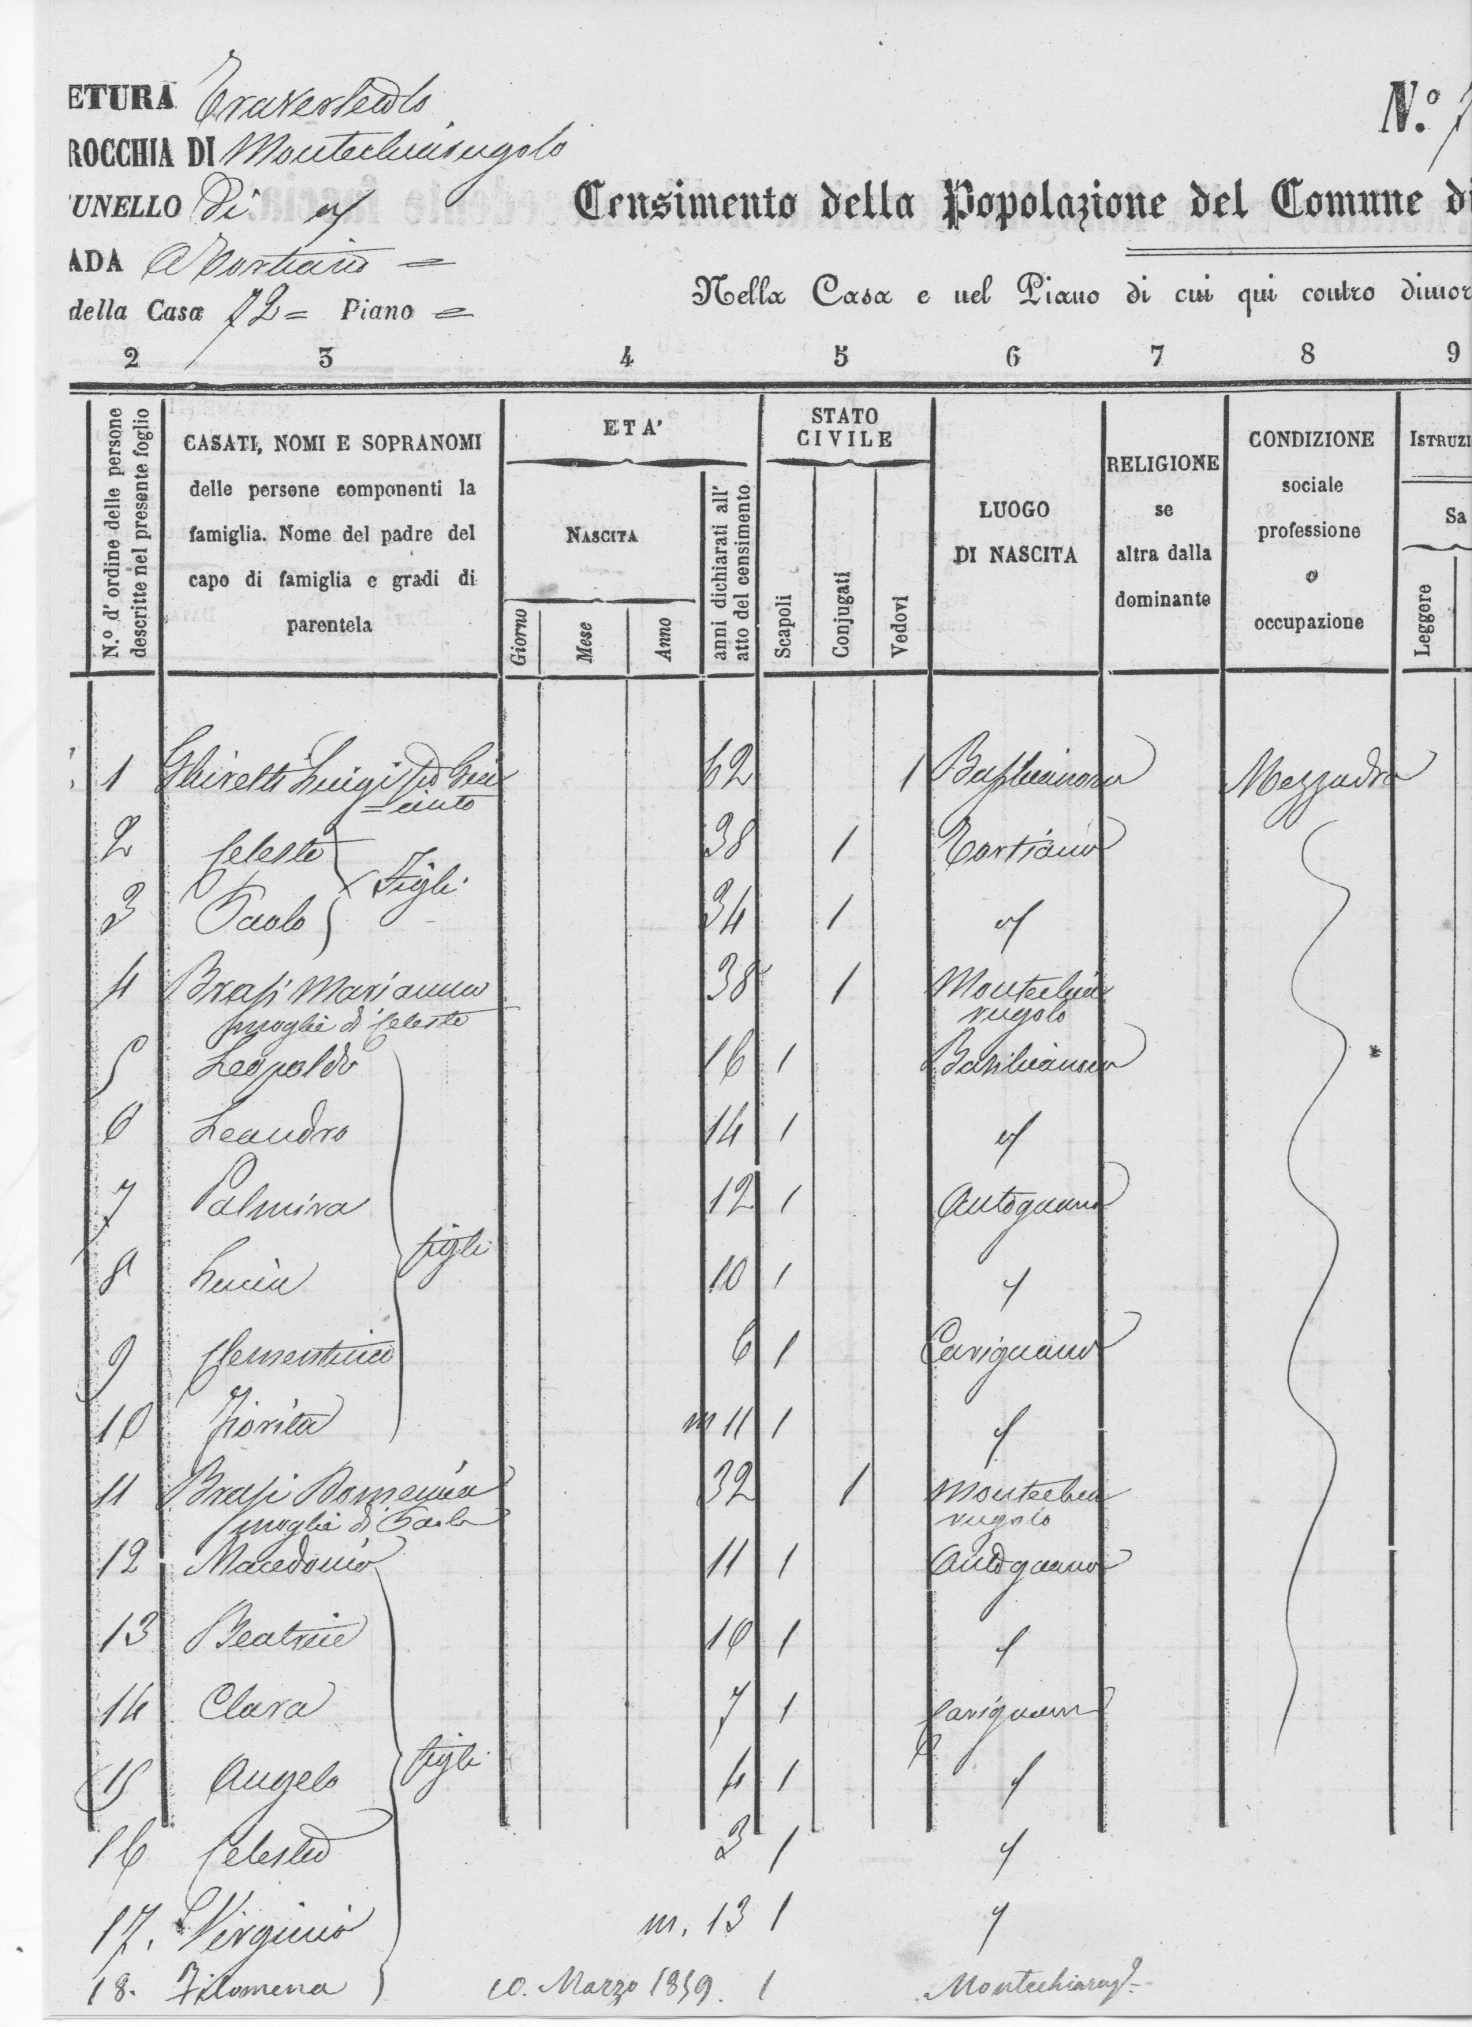 ETURA Traversetolo
ROCCHIA DI Montechiarugolo
UNELLO Di
ADA Tortiano =
della Casa 72 = Piano =
N.º 7
Censimento della Popolazione del Comune di
Nella Casa e nel Piano di cui qui contro dimor
2 3 4 5 6 7 8 9
N.º d' ordine delle persone
descritte nel presente foglio
CASATI, NOMI E SOPRANOMI
delle persone componenti la
famiglia. Nome del padre del
capo di famiglia e gradi di
parentela
ETA'
NASCITA
Giorno
Mese
Anno
anni dichiarati all'
atto del censimento
STATO
CIVILE
Scapoli
Conjugati
Vedovi
LUOGO
DI NASCITA
RELIGIONE
se
altra dalla
dominante
CONDIZIONE
sociale
professione
o
occupazione
ISTRUZI
Sa
Leggere
1 Ghiretti Luigi fu Gia 62 1 Mezzadro
=cinto
2 Celeste 38 1 Tortiano
Figli
3 Paolo 34 1 "
4 Brasi Marianna 38 1 Montechia
moglie di Celeste rugolo
5 Leopoldo 16 1 Basilicanova
6 Leandro 14 1 "
7 Palmira 12 1 Antognano
figli
8 Lucia 10 1 "
9 Clementina 6 1 Carignano
10 Fiorita m 11 1 "
11 Brasi Domenica 32 1 Montechia
moglie di Paolo rugolo
12 Macedonio 11 1 Antognano
13 Beatrice 10 1 "
14 Clara 7 1 Carignano
figli
15 Angelo 4 1 "
16 Celeste 3 1 "
17. Virginio m. 13 1 "
18. Filomena 10. Marzo 1859. 1 Montechiarugº